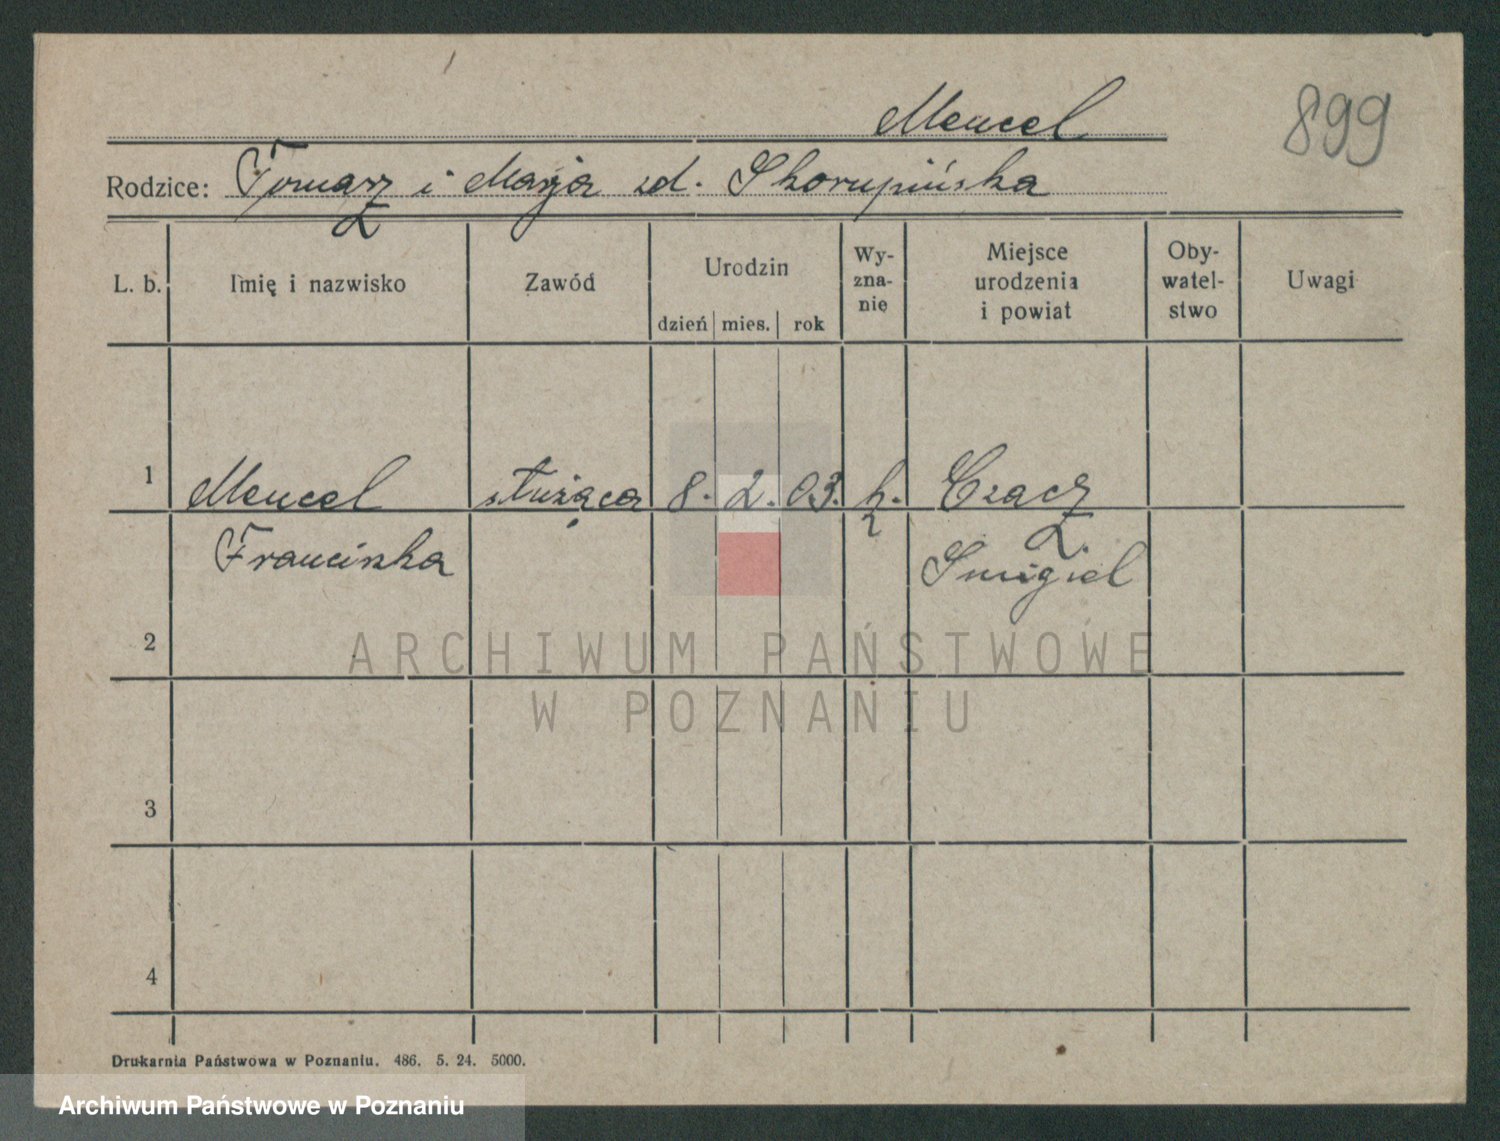 Mencel
899
Rodzice: Tomasz i Marja zd. Skorupińska
L. b.
Imię i nazwisko
Zawód
Urodzin
dzień mies. rok
Wy-
zna-
nię
Miejsce
urodzenia
i powiat
Oby-
watel-
stwo
Uwagi
1 Mencel służąca 8. 2. 03. k. Czacz
Franciszka Śmigiel
2
3
4
ARCHIWUM PAŃSTWOWE
W POZNANIU
Drukarnia Państwowa w Poznaniu. 486. 5. 24. 5000.
Archiwum Państwowe w Poznaniu